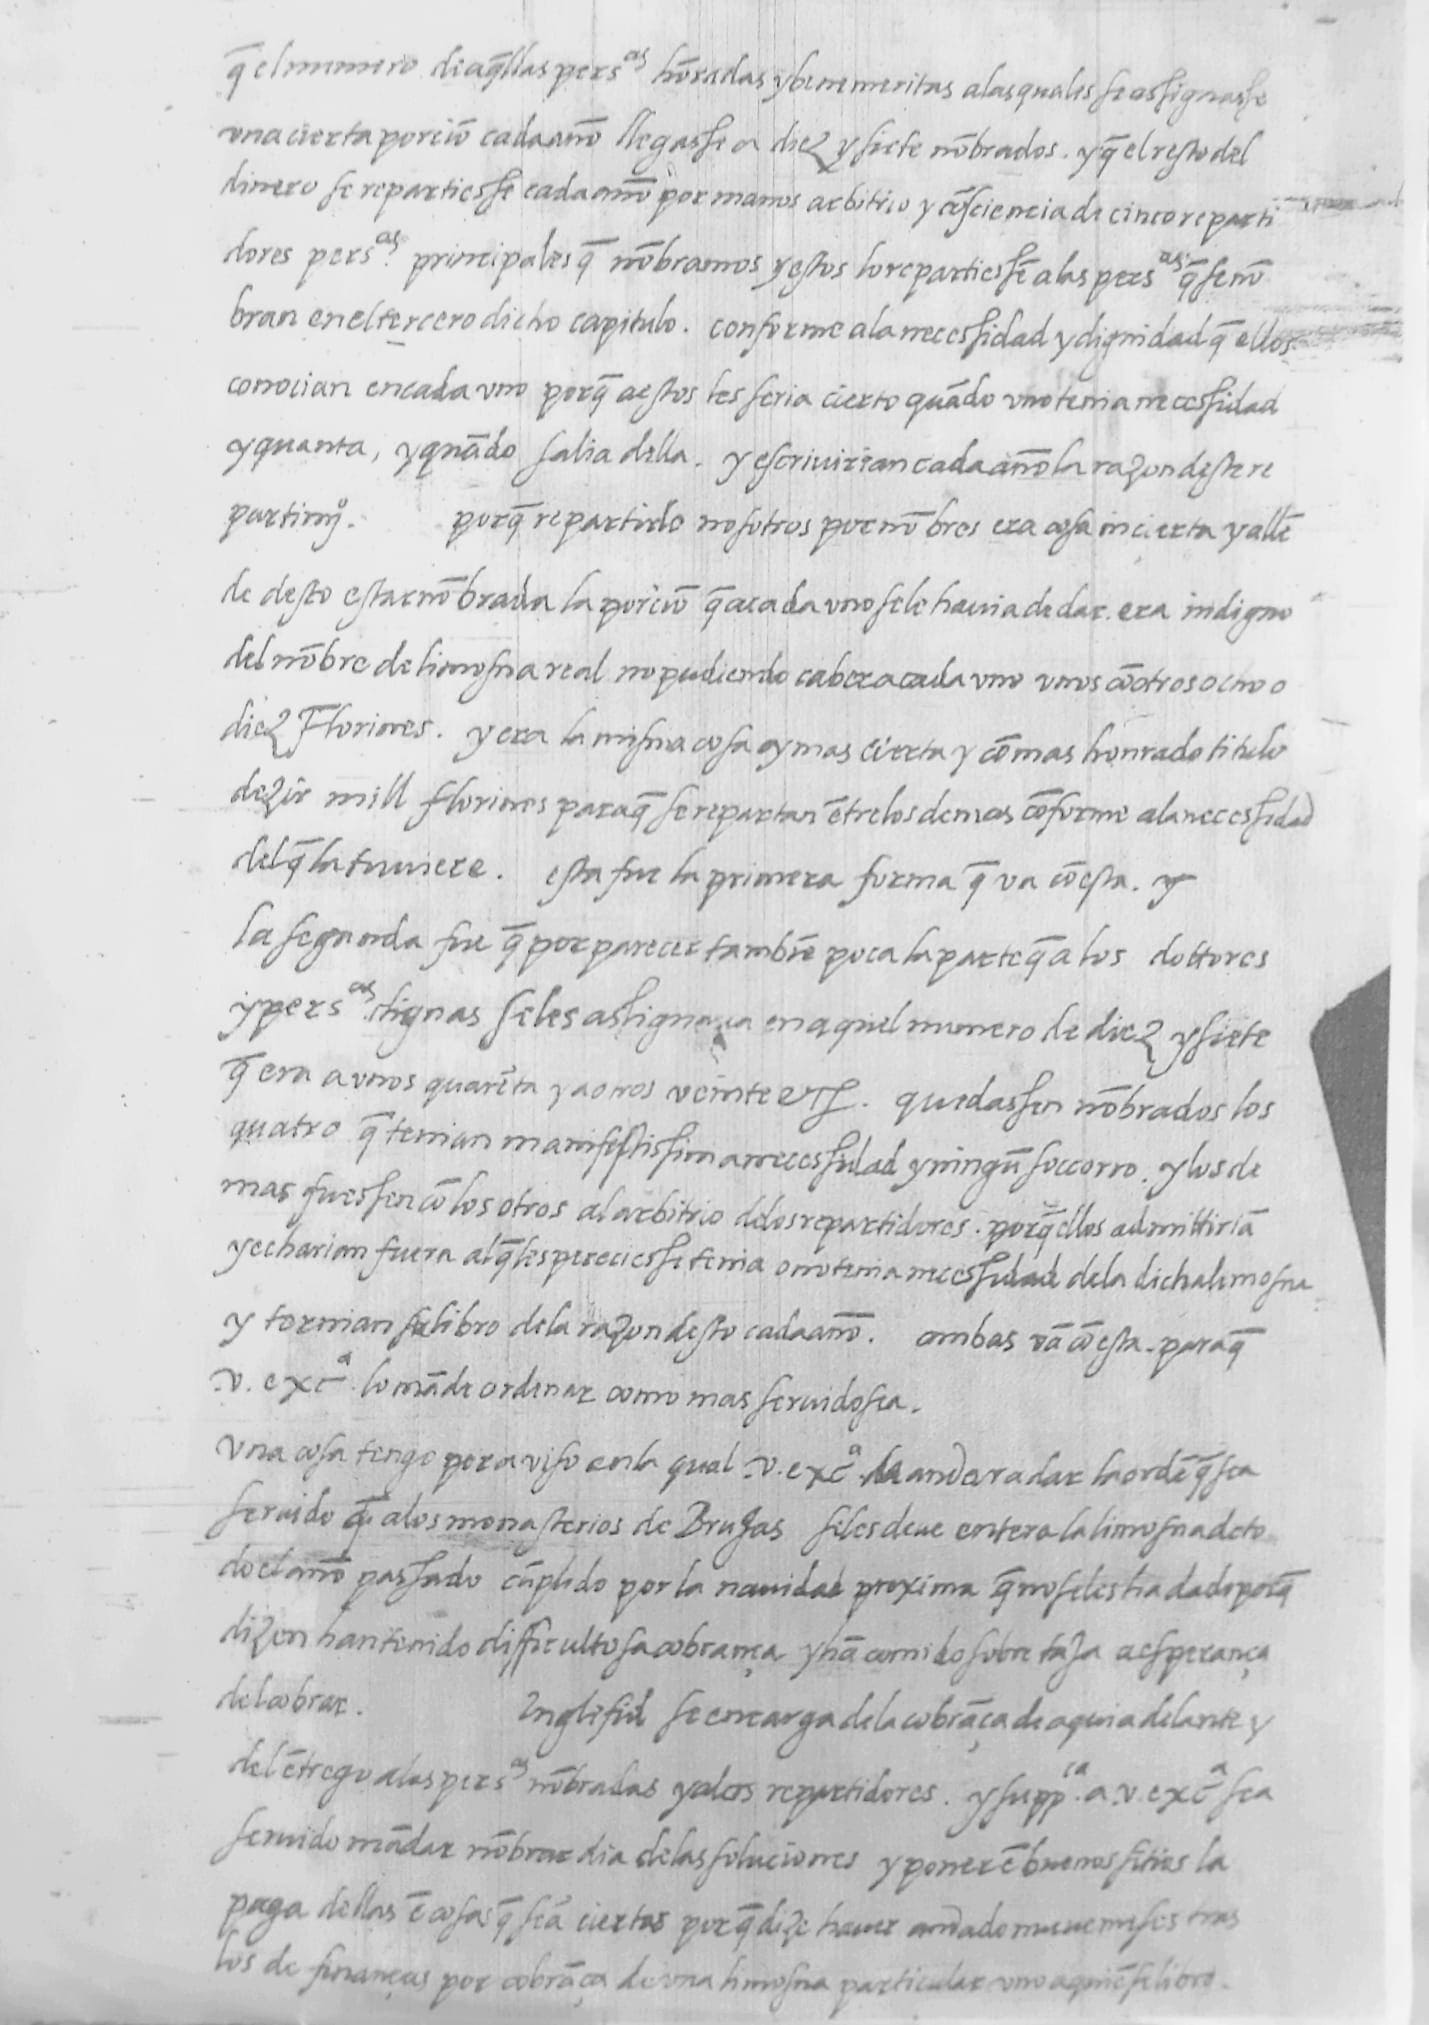 q̄ el numero de aq̄llas persas hōradas y benemeritas a las quales se assignasse
una cierta porciō cada año llegasse a diez y siete nōbrados. y q̄ el resto del
dinero se repartiesse cada año por manos arbitrio y cōsciencia de cinco reparti
dores persas. principales q̄ nōbramos y estos lo repartiessē a las persas. q̄ se nō
bran en el tercero dicho capitulo. conforme a la necessidad y dignidad q̄ ellos
conocian en cada uno porq̄ a estos les seria cierto quādo uno tenia necessidad
y quanta, y quādo salia della. y escrivirian cada año la razon deste re
partimº. porq̄ repartirlo nosotros por nōbres era cosa incierta y allē
de desto estar nōbrada la porciō q̄ a cada uno se le havia de dar. era indigno
del nōbre de limosna real no pudiendo caber a cada uno unos cō otros ocho o
diez Florines. y era la misma cosa y mas cierta y cō mas honrado titulo
dezir mill florines paraq̄ se repartan ētre los demas cōforme a la necessidad
del q̄ la tuviere. esta fue la primera forma q̄ va cō esta. y
la segunda fue q̄ por parecer tambiē poca la parte q̄ a los doctores
y persas. dignas se les assignava en aquel numero de diez y siete
q̄ era a unos quarēta y a otros veinte etc. quedassen nōbrados los
quatro q̄ tenian manifestissima necessidad y ningū soccorro. y los de
mas fuessen cō los otros al arbitrio de los repartidores. porq̄ ellos admittiriā
y echarian fuera al q̄ les pereciesse tenia o no tenia necessidad de la dicha limosna
y tornian su libro de la razon desto cada año. ambas vā cō esta. paraq̄
.v. exca. lo māde ordenar como mas servido sea.
Una cosa tengo por aviso en la qual .v. exca. mandara dar la ordē q̄ sea
servido q̄ a los monasterios de Brujas se les deve entera la limosna de to
do el año passado cūplido por la navidad proxima q̄ no se les ha dado porq̄
dizen han tenido difficultosa cobrança y hā comido sobre taja a esperança
de cobrar. Inglefid se encarga de la cobrāça de aqui adelante y
del ētrego a las persas nōbradas y a los repartidores. y suppca. a .v. exca sea
servido mādar nōbrar dia de las soluciones y poner ē buenos sitios la
paga dellas ē cosas q̄ seā ciertas porq̄ dize haver andado nueve meses tras
los de finanças por cobrāça de una limosna particular uno a quiē se libro.